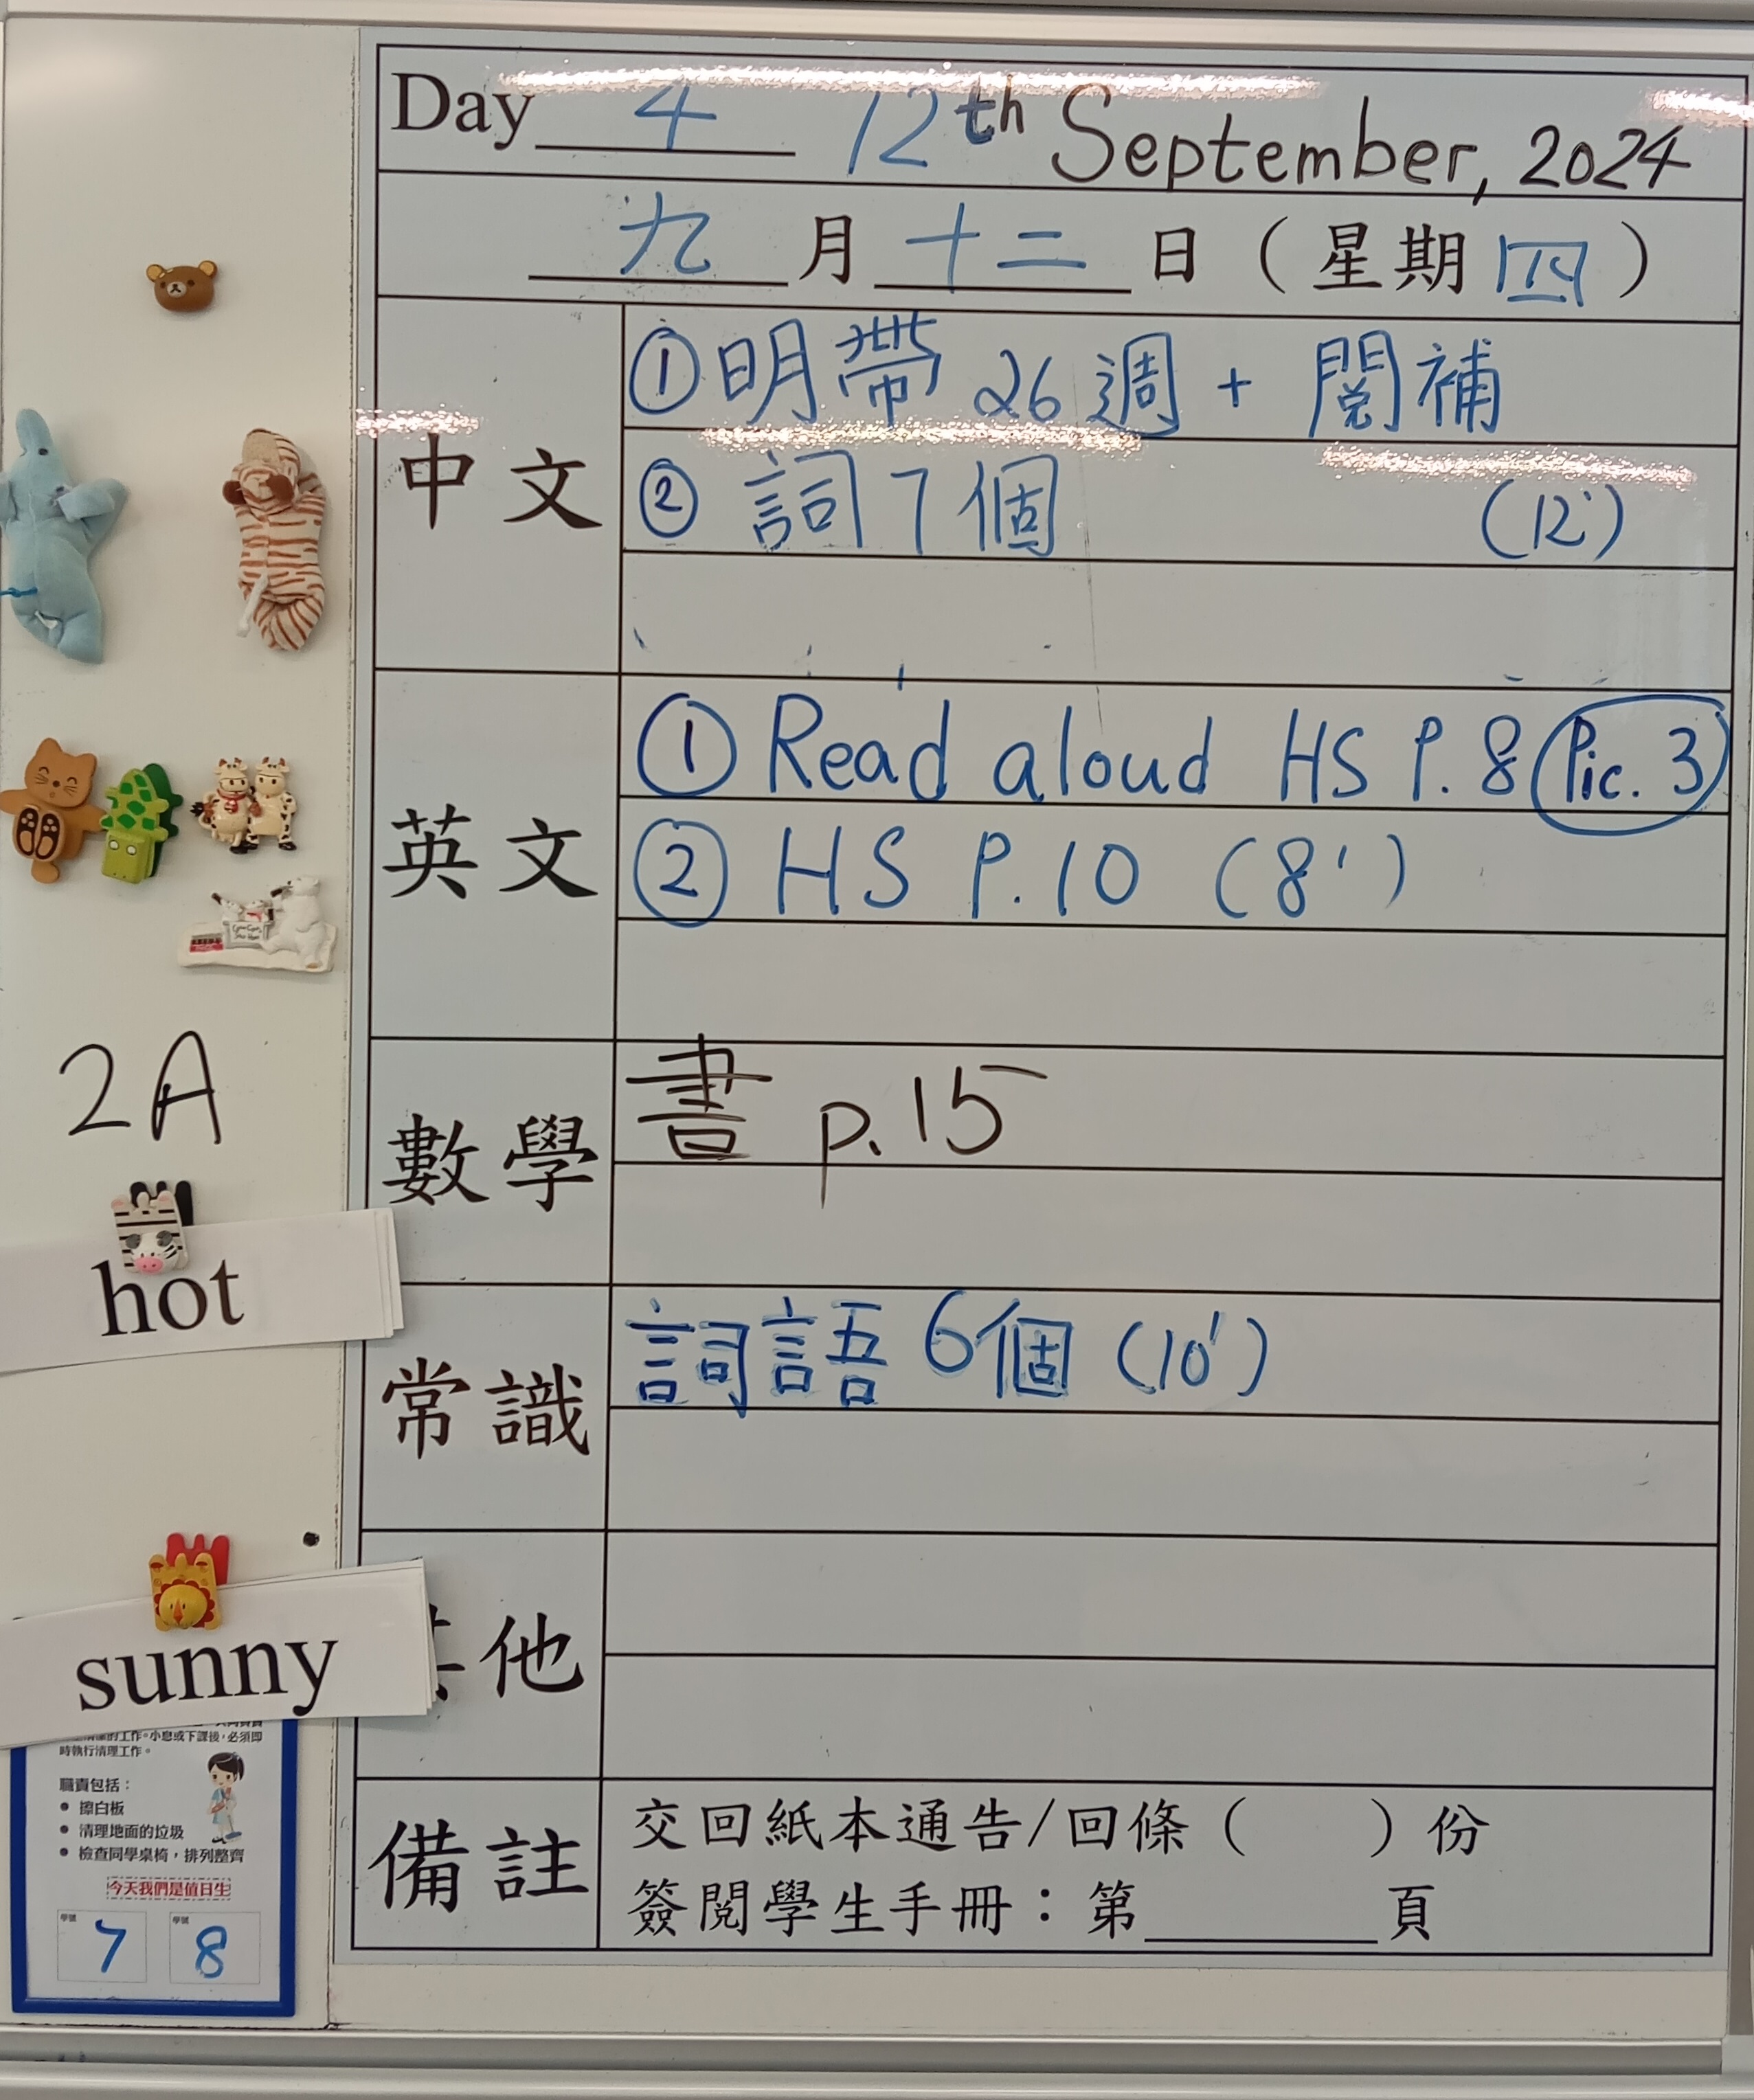 Day 4 12th September, 2024
九月十二日（星期四）
中文
①明帶26週+閱補
②詞7個 (12')
英文
①Read aloud HS P.8 Pic. 3
②HS P.10 (8')
數學
書 p.15
常識
詞語6個 (10')
他
備註
交回紙本通告/回條（ ）份
簽閱學生手冊：第____頁
2A
hot
sunny
的工作。小息或下課後，必須即
時執行清理工作。
職責包括：
● 擦白板
● 清理地面的垃圾
● 檢查同學桌椅，排列整齊
今天我們是值日生
學號 學號
7 8